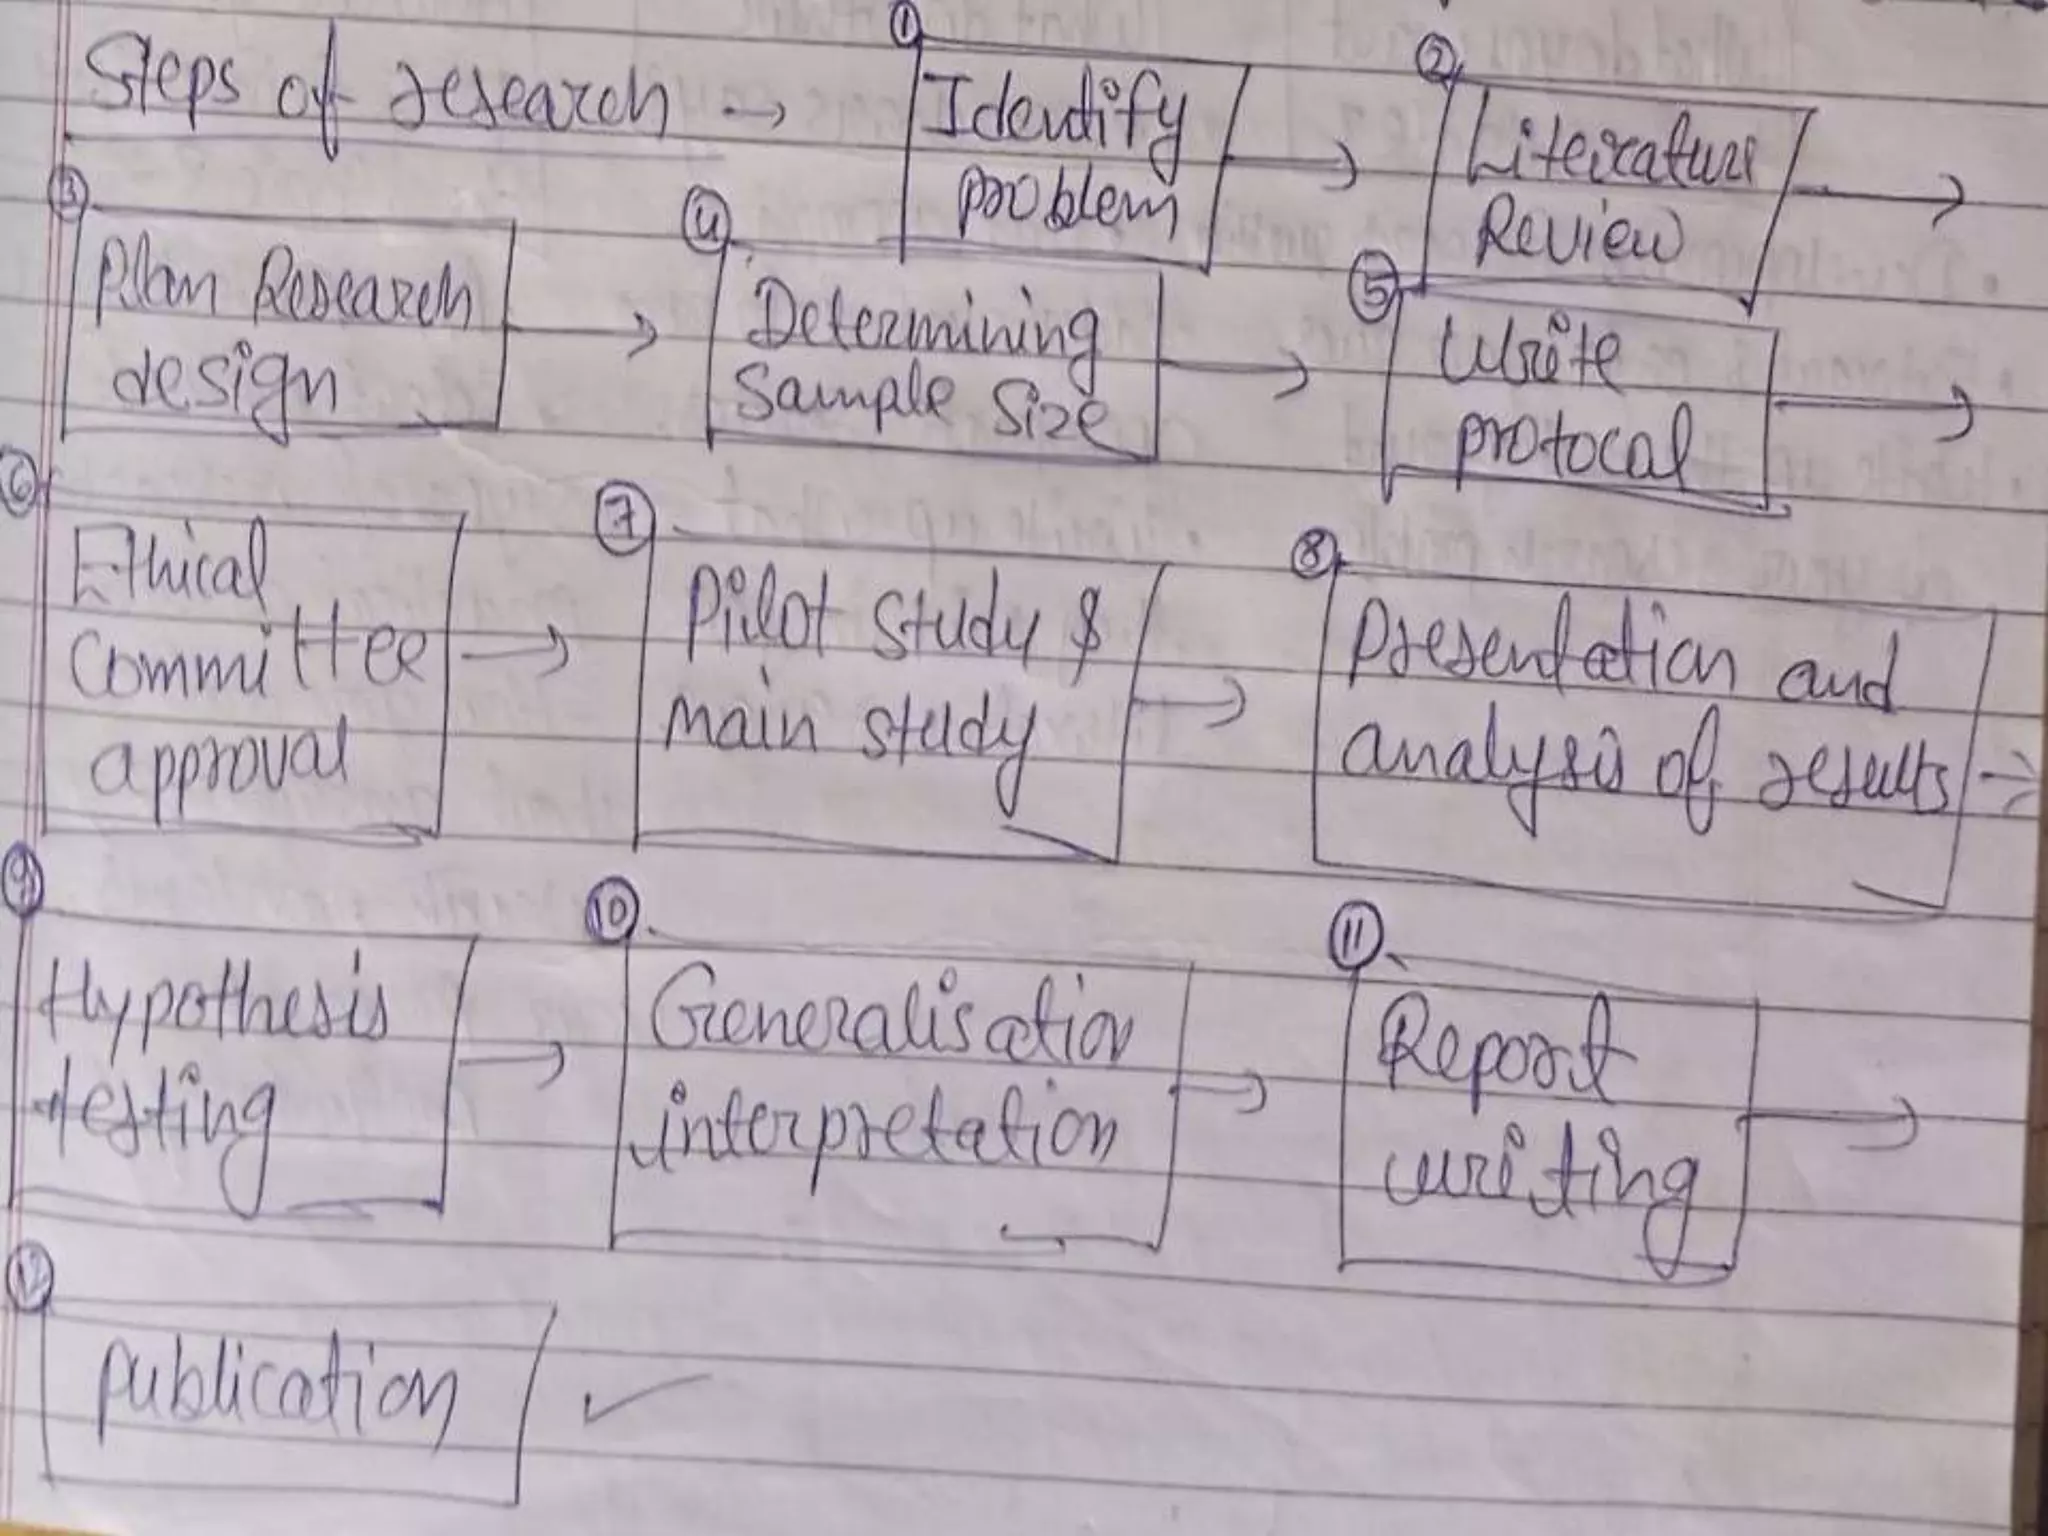 Steps of research →
① Identify
problem →
② Literature
Review →
③ Plan Research
design →
④ Determining
Sample Size →
⑤ Write
protocal →
⑥ Ethical
committee
approval →
⑦ Pilot study &
main study →
⑧ Presentation and
analysis of results →
⑨ Hypothesis
testing →
⑩ Generalisation
interpretation →
⑪ Report
writing →
⑫ publication ✓